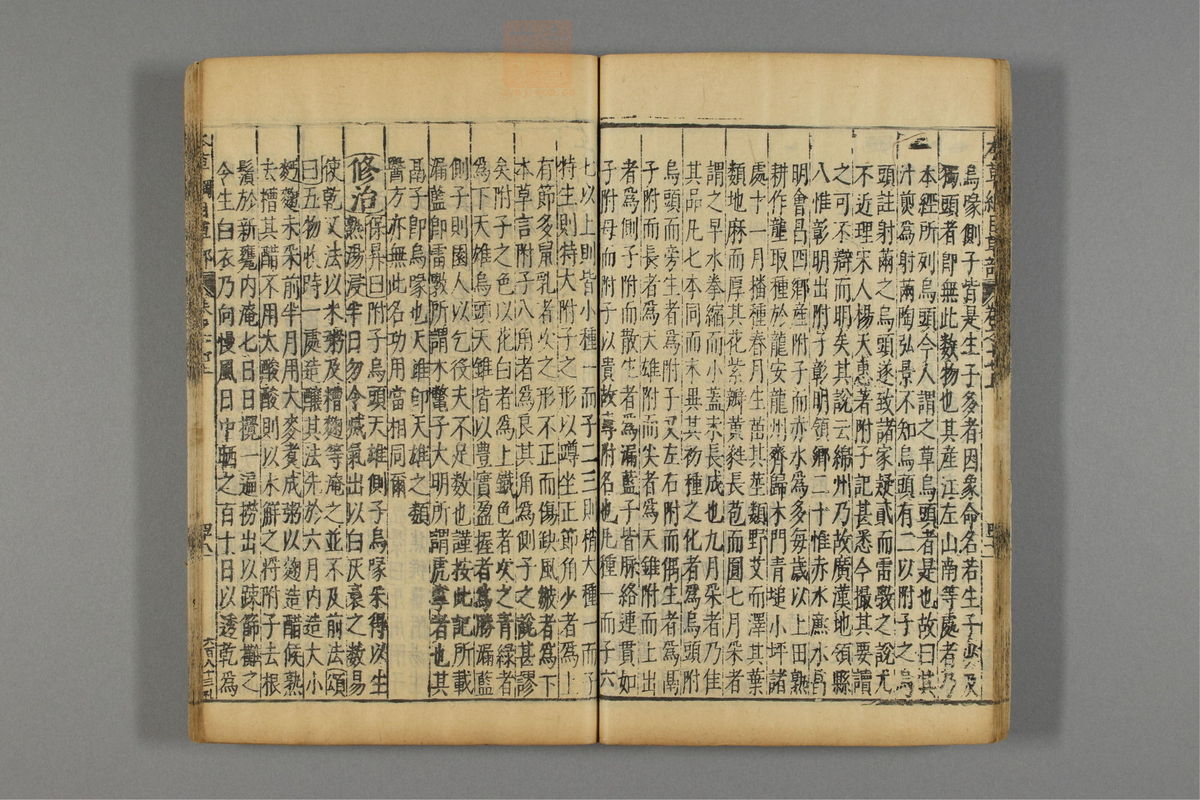 烏喙側子皆是生子多者因象命名若生子少及
獨頭者即無此數物也其產江左山南等處者乃
本經所列烏頭今人謂之草烏頭者是也故曰其
汁煎爲射罔陶弘景不知烏頭有二以附子之烏
頭註射罔之烏頭遂致諸家疑貳而雷斆之說尤
不近理宋人楊天惠著附子記甚悉今撮其要讀
之可不辯而明矣其說云綿州乃故廣漢地領縣
八惟彰明出附子彰明領鄉二十惟赤水廉水
明會昌四鄉產附子而赤水爲多每歲以上田熟
耕作壟取種於龍安龍州齊歸木門青堆小坪諸
處十一月播種春月生苗其莖類野艾而澤其葉
類地麻而厚其花紫瓣黃蕤長苞而圓七月采者
謂之早水拳縮而小蓋未長成也九月采者乃佳
其品凡七本同而末異其初種之化者爲烏頭附
烏頭而旁生者爲附子又左右附而偶生者爲鬲
子附而長者爲天雄附而尖者爲天錐附而上出
者爲側子附而散生者爲漏藍子皆脉絡連貫如
子附母而附子以貴故專附名也凡種一而子六
七以上則皆小種一而子二三則稍大種一而子
特生則特大附子之形以蹲坐正節角少者爲上
有節多鼠乳者次之形不正而傷缺風皺者爲下
本草言附子八角者爲良其角爲側子之說甚謬
矣附子之色以花白者爲上鐵色者次之青綠者
爲下天雄烏頭天錐皆以豐實盈握者爲勝漏藍
側子則園人以乞役夫不足數也謹按此記所載
漏藍即雷斆所謂木鱉子大明所謂虎掌者也其
鬲子即烏喙也天錐即天雄之類
醫方亦無此名功用當相同爾
修治保昇曰附子烏頭天雄側子烏喙采得以生
熟湯浸半日勿令滅氣出以白灰裛之數易
使乾又法以米粥及糟麴等淹之並不及前法頌
曰五物收時一處造釀其法先於六月內造大小
麪麴未采前半月用大麥煮成粥以麴造醋候熟
去糟其醋不用太酸酸則以水解之將附子去根
鬚於新甕內淹七日日攪一遍撈出以疎篩攤之
令生白衣乃向慢風日中晒之百十日以透乾爲